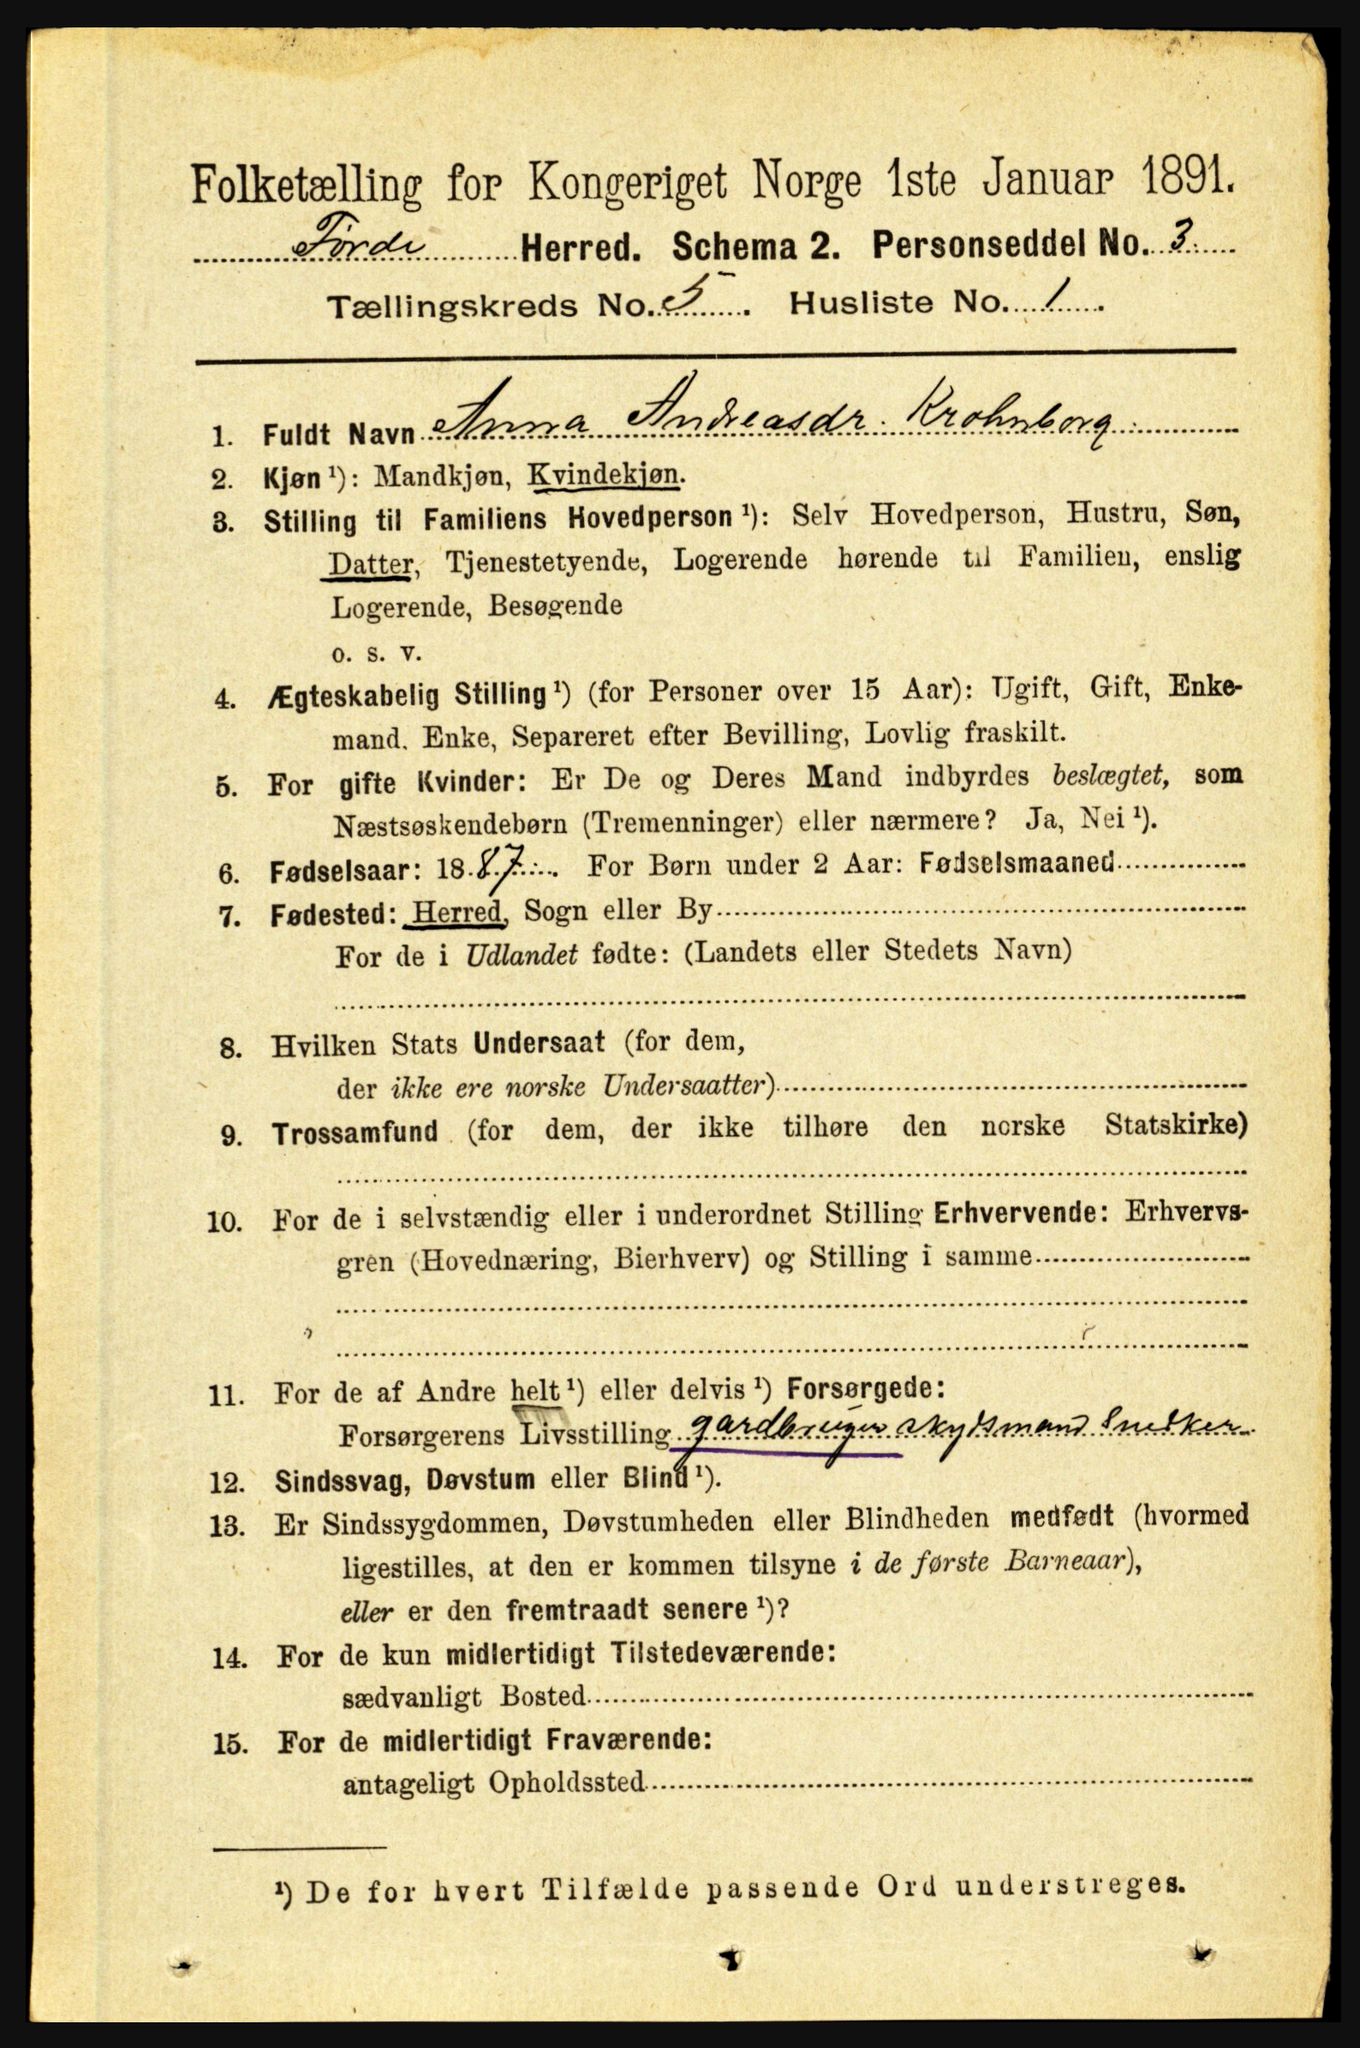 Folketælling for Kongeriget Norge 1ste Januar 1891.
Førde Herred. Schema 2. Personseddel No. 3
Tællingskreds No. 5. Husliste No. 1.
1. Fuldt Navn Anna Andreasdr. Krohnborg
2. Kjøn ¹): Mandkjøn, Kvindekjøn.
3. Stilling til Familiens Hovedperson ¹): Selv Hovedperson, Hustru, Søn,
Datter, Tjenestetyende, Logerende hørende til Familien, enslig
Logerende, Besøgende
o. s. v.
4. Ægteskabelig Stilling ¹) (for Personer over 15 Aar): Ugift, Gift, Enke-
mand, Enke, Separeret efter Bevilling, Lovlig fraskilt.
5. For gifte Kvinder: Er De og Deres Mand indbyrdes beslægtet, som
Næstsøskendebørn (Tremenninger) eller nærmere? Ja, Nei ¹).
6. Fødselsaar: 1887. For Børn under 2 Aar: Fødselsmaaned
7. Fødested: Herred, Sogn eller By
For de i Udlandet fødte: (Landets eller Stedets Navn)
8. Hvilken Stats Undersaat (for dem,
der ikke ere norske Undersaatter)
9. Trossamfund (for dem, der ikke tilhøre den norske Statskirke)
10. For de i selvstændig eller i underordnet Stilling Erhvervende: Erhvervs-
gren (Hovednæring, Bierhverv) og Stilling i samme
11. For de af Andre helt ¹) eller delvis ¹) Forsørgede:
Forsørgerens Livsstilling gardbruger skydsmand Snedker
12. Sindssvag, Døvstum eller Blind ¹).
13. Er Sindssygdommen, Døvstumheden eller Blindheden medfødt (hvormed
ligestilles, at den er kommen tilsyne i de første Barneaar),
eller er den fremtraadt senere ¹)?
14. For de kun midlertidigt Tilstedeværende:
sædvanligt Bosted
15. For de midlertidigt Fraværende:
antageligt Opholdssted
¹) De for hvert Tilfælde passende Ord understreges.